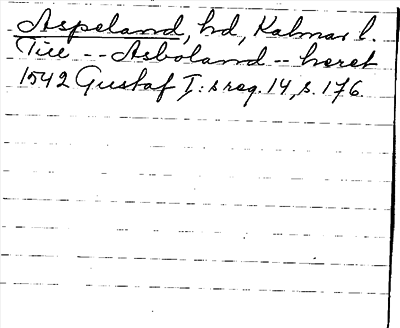 Aspeland, hd, Kalmar l.
Till -- Asboland -- heret
1542 Gustaf I:s reg. 14, s. 176.